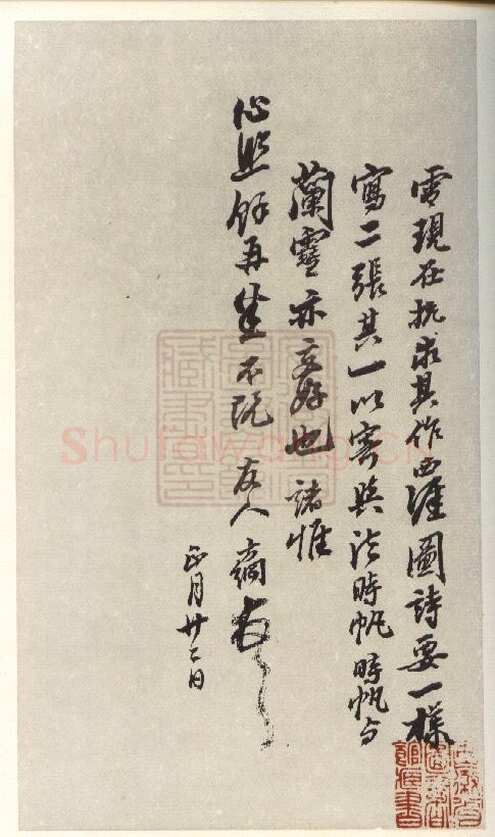 雪現在杭求其作西涯圖詩要一樣
寫二張其一以寄與法時帆時帆与
蘭雪亦交好也諸惟
心照餘再集不既 友人
正月廿二日
Shufawang.cn